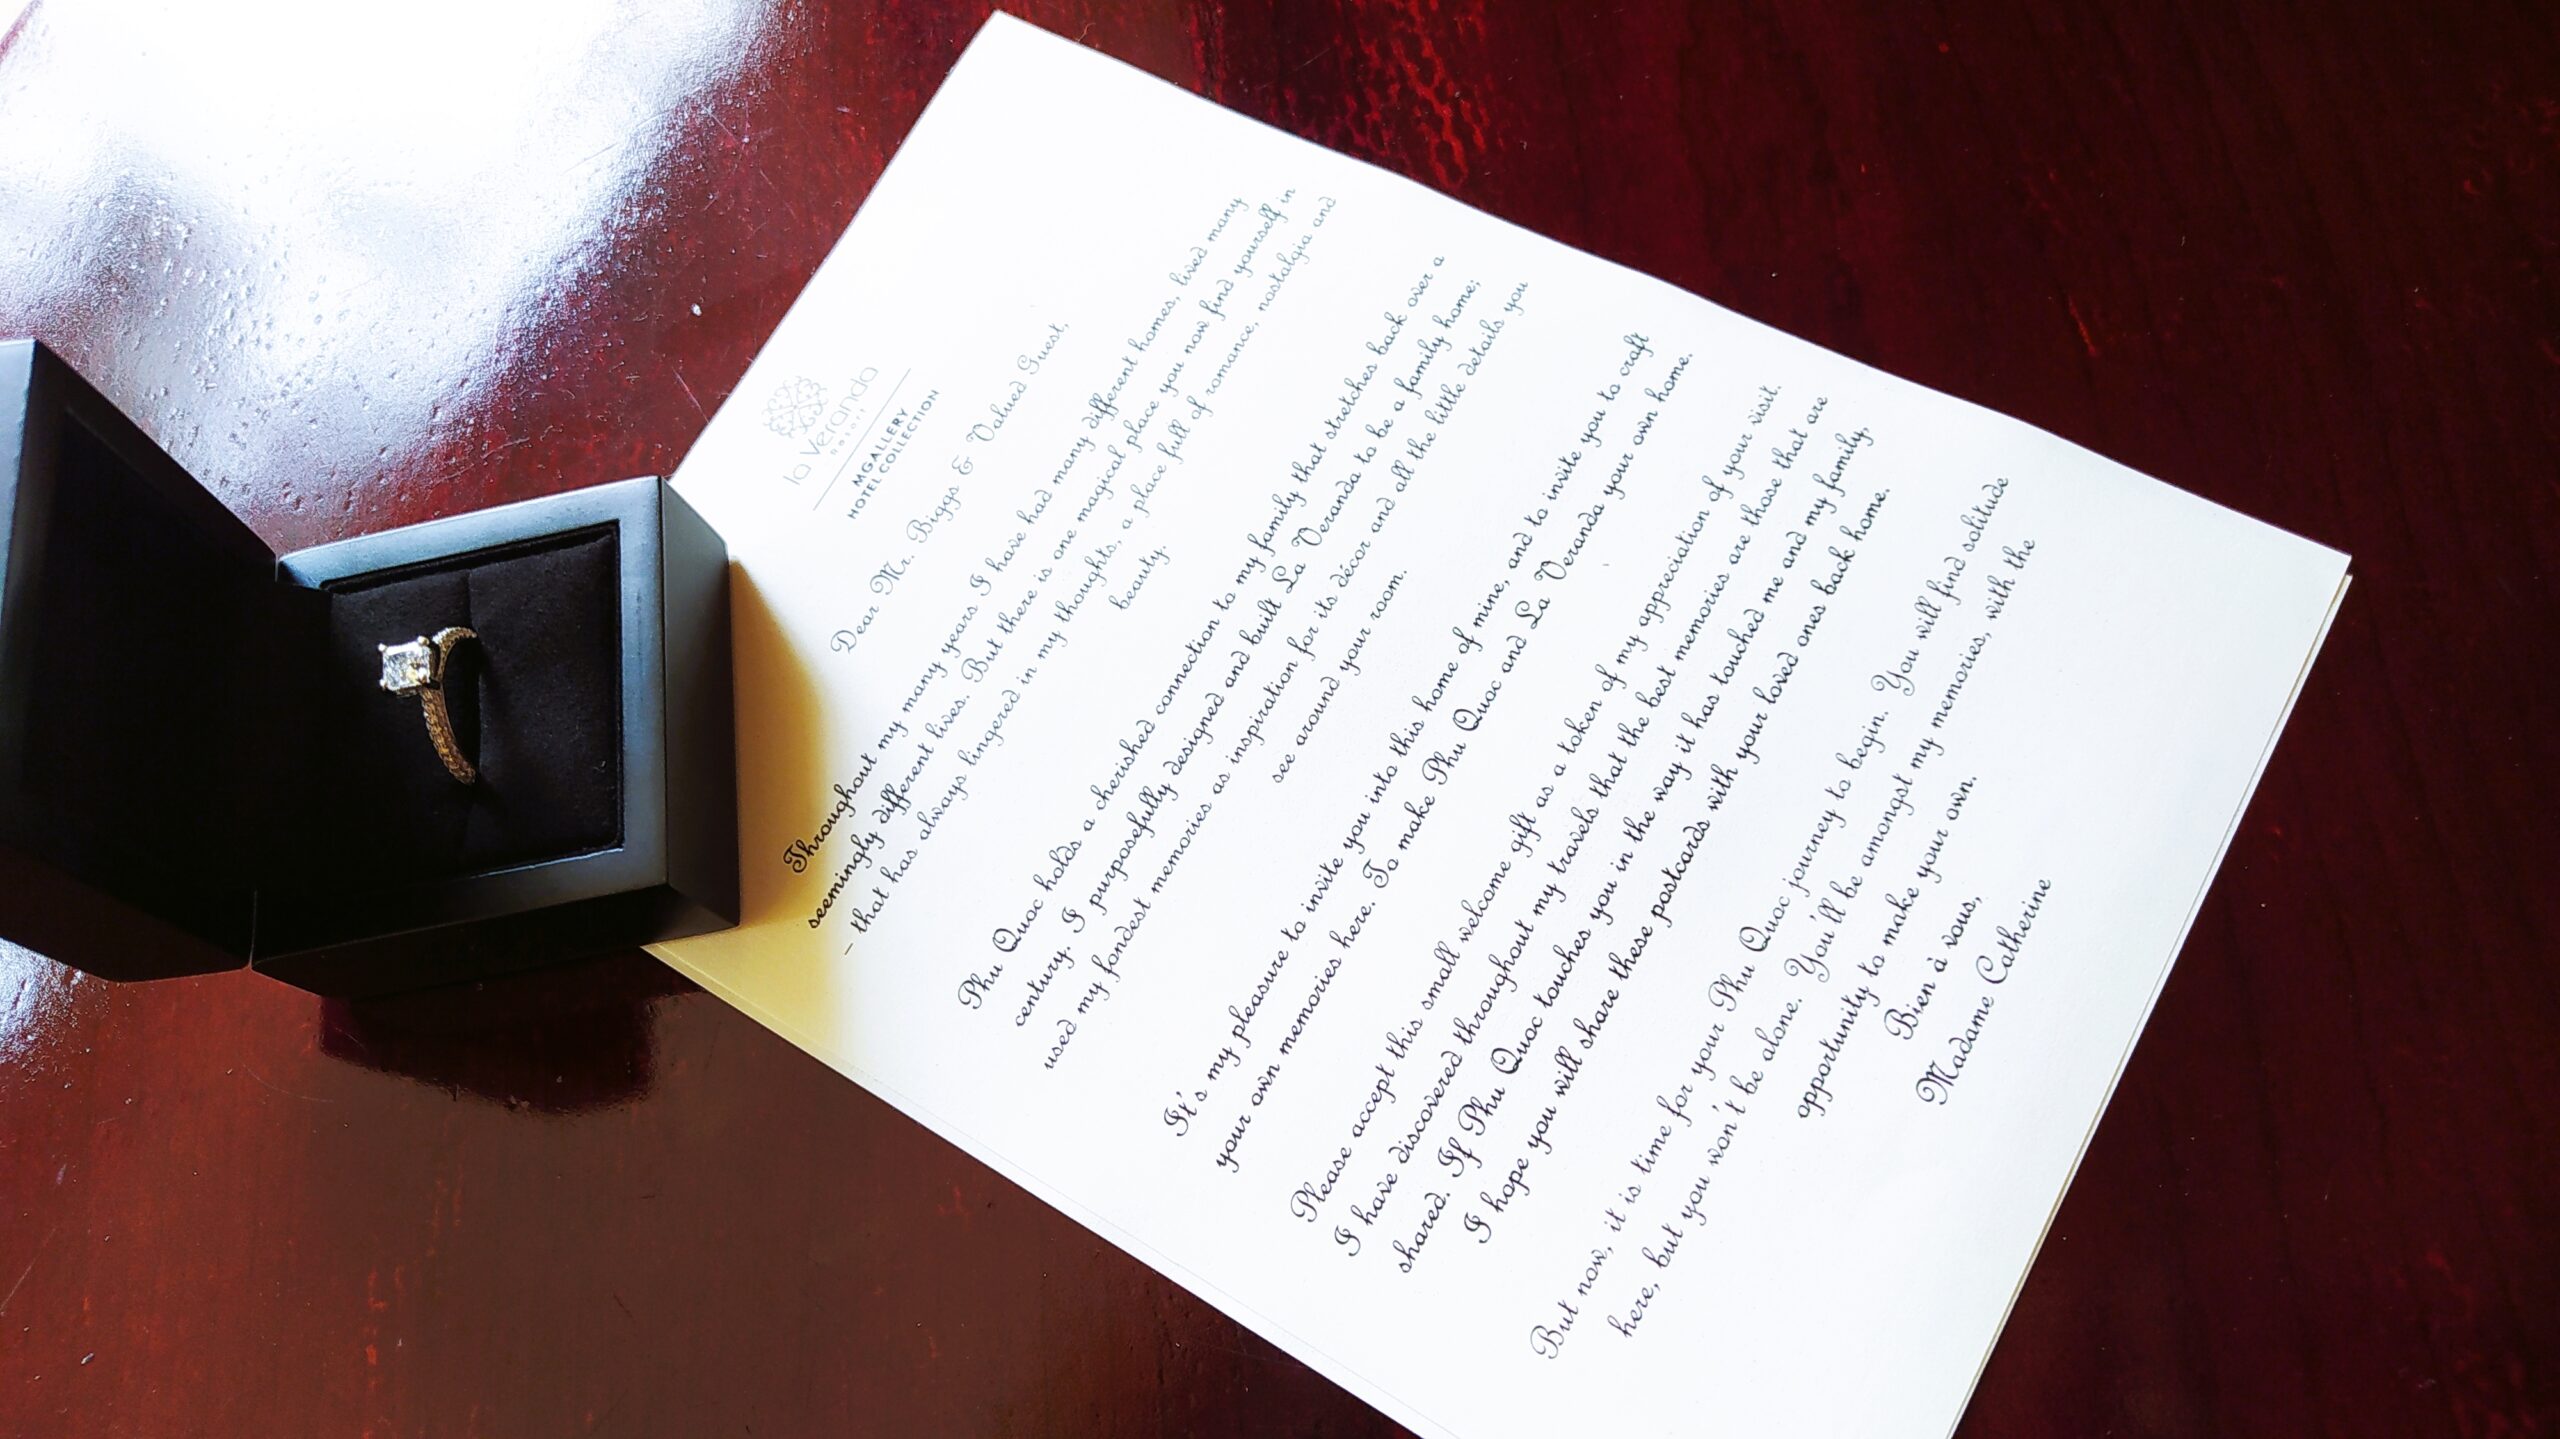 la Veranda
RESORT
MGALLERY
HOTEL COLLECTION
Dear Mr. Biggs & Valued Guest,
Throughout my many years I have had many different homes, lived many
seemingly different lives. But there is one magical place you now find yourself in
– that has always lingered in my thoughts, a place full of romance, nostalgia and
beauty.
Phu Quoc holds a cherished connection to my family that stretches back over a
century. I purposefully designed and built La Veranda to be a family home;
used my fondest memories as inspiration for its décor and all the little details you
see around your room.
It's my pleasure to invite you into this home of mine, and to invite you to craft
your own memories here. To make Phu Quoc and La Veranda your own home.
Please accept this small welcome gift as a token of my appreciation of your visit.
I have discovered throughout my travels that the best memories are those that are
shared. If Phu Quoc touches you in the way it has touched me and my family,
I hope you will share these postcards with your loved ones back home.
But now, it is time for your Phu Quoc journey to begin. You will find solitude
here, but you won't be alone. You'll be amongst my memories, with the
opportunity to make your own.
Bien à vous,
Madame Catherine